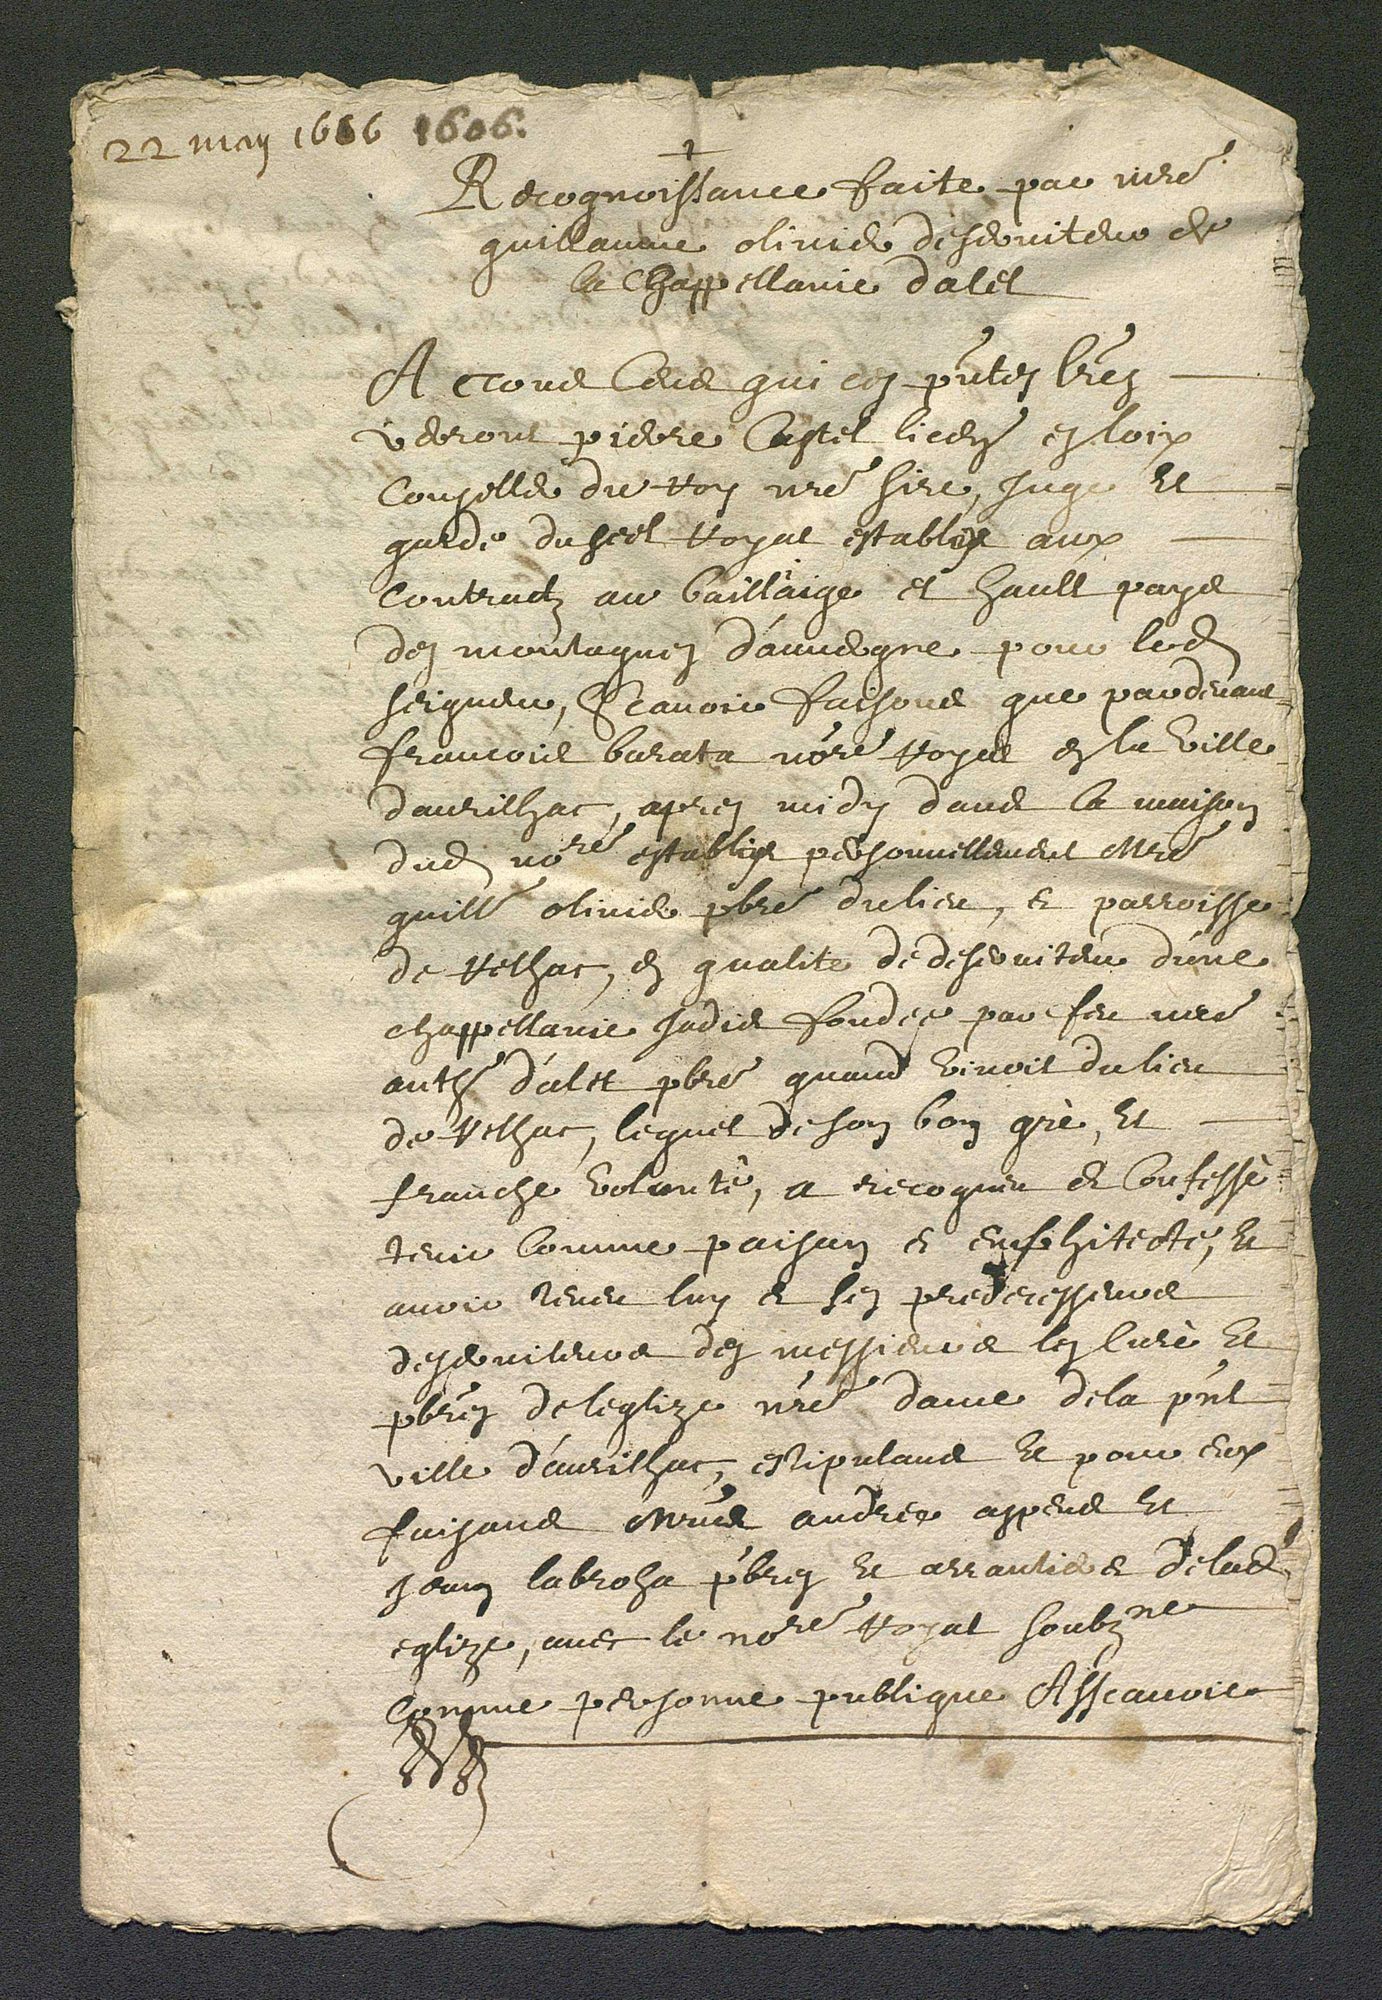 22 may 1606 1606.
Recognoissance faite par mre
guillaume olivier deserviteur de
la chappellanie dalet
A tous ceux qui ces pntes lres
verront pierre Castel licen en loix
Conseller du Roy nre sire, Juge et
garde du scel Royal establi aux
contractz au bailliaige et hault pays
des montagnes d'auvergne pour led
seigneur, Scavoir faisons que pardevant
francois barata nore Royal en la ville
daurilhac, apres midy dans la maison
dud nore establi personnellement Mre
guille olivier pbre du lieu, et parroisse
de Reilhac, en qualite de deserviteur d'une
chappellanie jadis fondee par feu mre
anthe d'alet pbre quand vivoit du lieu
de Reilhac, lequel de son bon gré, et
franche volunté, a recogneu et confessé
tenir comme paisan et emfhiteote, et
avoir tenu luy et ses predecesseurs
deserviteurs des messieurs les curé et
pbres de leglize nre dame de la pnt
ville d'aurilhac, estipulans et pour eux
faisans Mres andree appens et
Jean labroha pbres et arrantiers de lad
eglize, avec le nore Royal soubzne
comme personne publique Asscavoir